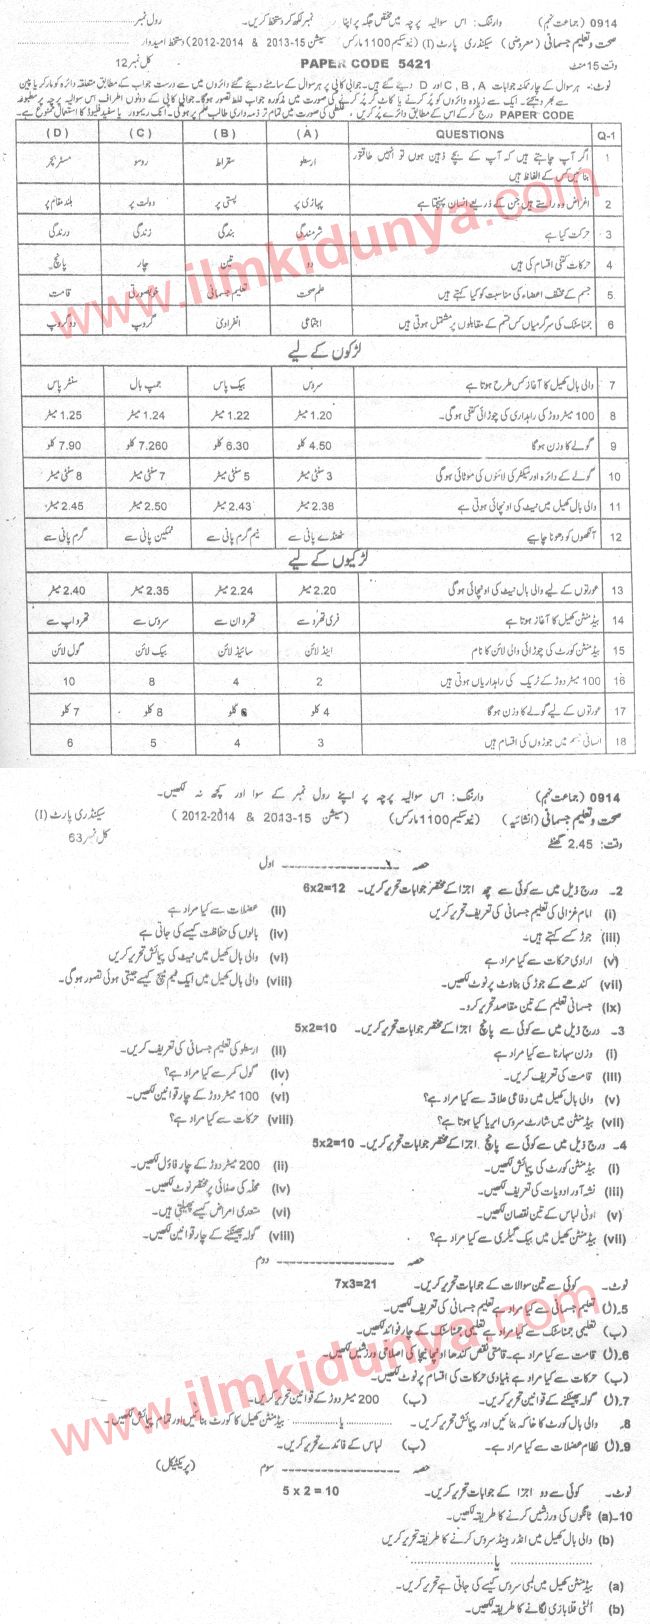 0914 (جماعت نہم) وارننگ: اس سوالیہ پرچہ میں مختص جگہ پر اپنا رول نمبر لکھ کر دستخط کریں۔ رول نمبر
صحت و تعلیم جسمانی (معروضی) سیکنڈری پارٹ (I) (نیو سکیم 1100 مارکس سیشن 15-2013 & 2014-2012) دستخط امیدوار
وقت 15 منٹ PAPER CODE 5421 کل نمبر 12
نوٹ۔ ہر سوال کے چار ممکنہ جوابات A ,B ,C اور D دیے گئے ہیں۔ جوابی کاپی پر ہر سوال کے سامنے دیئے گئے دائروں میں سے درست جواب کے مطابق متعلقہ دائرہ کو مارکر یا پین
سے بھر دیجئے۔ ایک سے زیادہ دائروں کو پُر کرنے یا کاٹ کر پُر کرنے کی صورت میں مذکورہ جواب غلط تصور ہوگا۔ جوابی کاپی کے دونوں اطراف اس سوالیہ پرچہ پر مطبوعہ
PAPER CODE درج کر کے اس کے مطابق دائرے پُر کریں۔ غلطی کی صورت میں تمام تر ذمہ داری طالب علم پر ہوگی۔ انک ریموور یا سفید فلیوڈ کا استعمال ممنوع ہے۔
Q-1 QUESTIONS (A) (B) (C) (D)
1 اگر آپ چاہتے ہیں کہ آپ کے بچے ذہین ہوں تو انہیں طاقتور ارسطو سقراط روسو مسٹر بچر
بنائیں کس کے الفاظ ہیں
2 اغراض وہ راستے ہیں جن کے ذریعے انسان پہنچتا ہے پہاڑی پر پستی پر دولت پر بلند مقام پر
3 حرکت کیا ہے شرمندگی بندگی زندگی درندگی
4 حرکات کتنی اقسام کی ہیں دو تین چار پانچ
5 جسم کے مختلف اعضاء کی مناسبت کو کیا کہتے ہیں علم صحت تعلیم جسمانی خوبصورتی قامت
6 جمناسٹک کی سرگرمیاں کس قسم کے مقابلوں پر مشتمل ہوتی ہیں اجتماعی انفرادی گروپ دو گروپ
لڑکوں کے لیے
7 والی بال کھیل کا آغاز کس طرح ہوتا ہے سروس بیک پاس جمپ بال سنٹر پاس
8 100 میٹر دوڑ کی راہداری کی چوڑائی کتنی ہوگی۔ 1.20 میٹر 1.22 میٹر 1.24 میٹر 1.25 میٹر
9 گولے کا وزن ہوگا 4.50 کلو 6.30 کلو 7.260 کلو 7.90 کلو
10 گولے کے دائرہ اور سیکٹر کی لائنوں کی موٹائی ہوگی 3 سنٹی میٹر 5 سنٹی میٹر 7 سنٹی میٹر 8 سنٹی میٹر
11 والی بال کھیل میں نیٹ کی اونچائی ہوتی ہے 2.38 میٹر 2.43 میٹر 2.50 میٹر 2.45 میٹر
12 آنکھوں کو دھونا چاہیے ٹھنڈے پانی سے نیم گرم پانی سے نمکین پانی سے گرم پانی سے
لڑکیوں کے لیے
13 عورتوں کے لیے والی بال نیٹ کی اونچائی ہوگی 2.20 میٹر 2.24 میٹر 2.35 میٹر 2.40 میٹر
14 بیڈمنٹن کھیل کا آغاز ہوتا ہے فری تھرو سے تھرو ان سے سروس سے تھرو اپ سے
15 بیڈمنٹن کورٹ کی چوڑائی والی لائن کا نام اینڈ لائن سائیڈ لائن بیک لائن گول لائن
16 100 میٹر دوڑ کے ٹریک کی راہداریاں ہوتی ہیں 2 4 8 10
17 عورتوں کے لیے گولے کا وزن ہوگا 4 کلو 6 کلو 8 کلو 7 کلو
18 انسانی جسم میں جوڑوں کی اقسام ہیں 3 4 5 6
0914 (جماعت نہم) وارننگ: اس سوالیہ پرچہ پر اپنے رول نمبر کے سوا اور کچھ نہ لکھیں۔
صحت و تعلیم جسمانی (انشائیہ) (نیو سکیم 1100 مارکس) (سیشن 15-2013 & 2014-2012) سیکنڈری پارٹ (I)
وقت: 2.45 گھنٹے کل نمبر 63
حصہ اول
2۔ درج ذیل میں سے کوئی سے چھ اجزا کے مختصر جوابات تحریر کریں۔ 6x2=12
(i) امام غزالی کی تعلیم جسمانی کی تعریف تحریر کریں (ii) عضلات سے کیا مراد ہے
(iii) جوڑ کسے کہتے ہیں۔ (iv) بالوں کی حفاظت کیسے کی جاتی ہے
(v) ارادی حرکات سے کیا مراد ہے (vi) والی بال کھیل میں نیٹ کی پیمائش تحریر کریں
(vii) کندھے کے جوڑ کی بناوٹ پر نوٹ لکھیں۔ (viii) والی بال کھیل میں ایک ٹیم میچ کیسے جیتی ہوئی تصور ہوگی۔
(ix) جسمانی تعلیم کے تین مقاصد تحریر کرو۔
3۔ درج ذیل میں سے کوئی سے پانچ اجزا کے مختصر جوابات تحریر کریں۔ 5x2=10
(i) وزن سہارنا سے کیا مراد ہے (ii) ارسطو کی تعلیم جسمانی کی تعریف کریں۔
(iii) قامت کی تعریف کریں۔ (iv) گول کمر سے کیا مراد ہے؟
(v) والی بال کھیل میں دفاعی علاقہ سے کیا مراد ہے؟ (vi) 100 میٹر دوڑ کے چار قوانین لکھیں۔
(vii) بیڈمنٹن میں شارٹ سروس ایریا کیا ہوتا ہے؟ (viii) حرکات سے کیا مراد ہے؟
4۔ درج ذیل میں سے کوئی سے پانچ اجزا کے مختصر جوابات تحریر کریں۔ 5x2=10
(i) بیڈمنٹن کورٹ کی پیمائش لکھیں۔ (ii) 200 میٹر دوڑ کے چار فاؤل لکھیں۔
(iii) نشہ آور ادویات کی تعریف لکھیں۔ (iv) محلہ کی صفائی پر مختصر نوٹ لکھیں۔
(v) اونی لباس کے تین نقصان لکھیں۔ (vi) متعدی امراض کیسے پھیلتی ہیں۔
(vii) بیڈمنٹن کھیل میں بیک گیلری سے کیا مراد ہے؟ (viii) گولہ پھینکنے کے چار قوانین لکھیں۔
حصہ دوم
نوٹ۔ کوئی سے تین سوالات کے جوابات تحریر کریں۔ 7x3=21
5۔(ا) تعلیم جسمانی سے کیا مراد ہے تعلیم جسمانی کی تعریف لکھیں۔
(ب) تعلیمی جمناسٹک سے کیا مراد ہے تعلیمی جمناسٹک کے چار فوائد لکھیں۔
6۔(ا) قامت سے کیا مراد ہے۔ قامتی نقص کندھا اونچا نیچا کی اصلاحی ورزشیں لکھیں۔
(ب) حرکات سے کیا مراد ہے بنیادی حرکات کی اقسام پر نوٹ لکھیں۔
7۔(ا) گولہ پھینکنے کے قوانین تحریر کریں۔ (ب) 200 میٹر دوڑ کے قوانین تحریر کریں۔
8۔ والی بال کورٹ کا خاکہ بنائیں اور پیمائش تحریر کریں۔ یا بیڈمنٹن کھیل کا کورٹ بنائیں اور تمام پیمائش لکھیں۔
9۔(ا) نظام عضلات سے کیا مراد ہے۔ (ب) لباس کے فائدے تحریر کریں۔
حصہ سوم (پریکٹیکل)
نوٹ۔ کوئی سے دو اجزا کے جوابات تحریر کریں۔ 5 x 2 = 10
10۔(a) ٹانگوں کی ورزشیں کرنے کا طریقہ لکھیں۔
(b) والی بال کھیل میں انڈر ہینڈ سروس کرنے کا طریقہ تحریر کریں
یا
(a) بیڈمنٹن کھیل میں لمبی سروس کیسے کی جاتی ہے تحریر کریں۔
(b) الٹی قلابازی لگانے کا طریقہ لکھیں۔
www.ilmkidunya.com
www.ilmkidunya.com